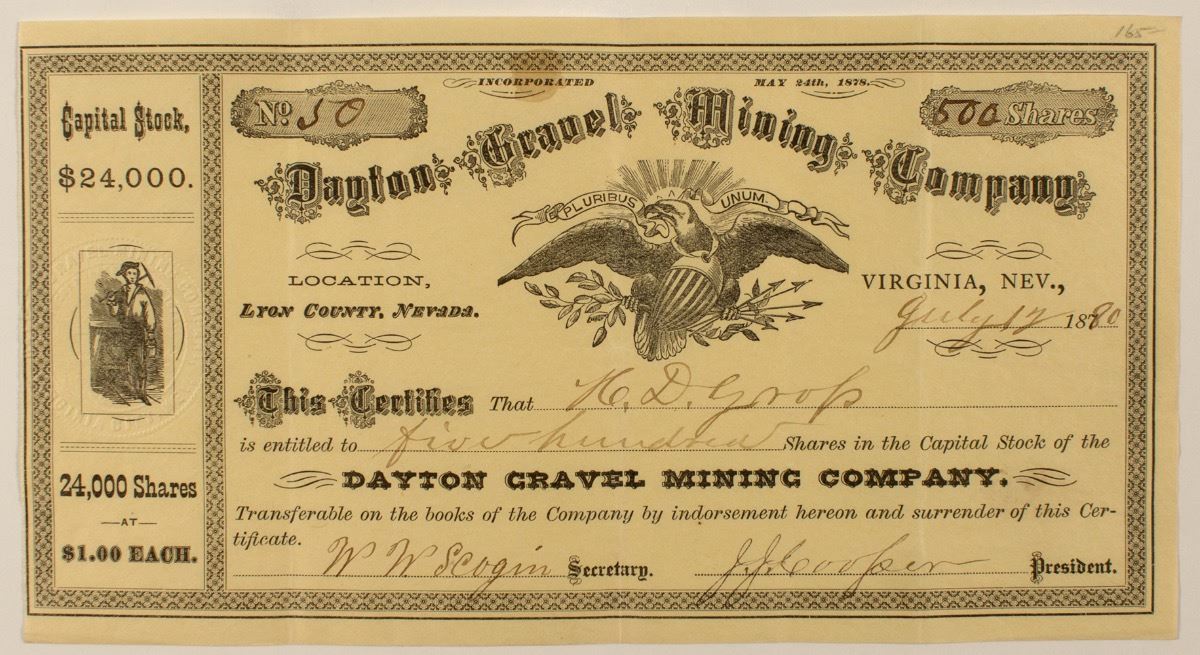 165
INCORPORATED MAY 24th, 1878.
No 50
500 Shares
Dayton Gravel Mining Company
E PLURIBUS UNUM.
Capital Stock,
$24,000.
24,000 Shares
—AT—
$1.00 EACH.
LOCATION,
LYON COUNTY, NEVADA.
VIRGINIA, NEV.,
July 17 1880
This Certifies That H. D. Gross
is entitled to five hundred Shares in the Capital Stock of the
DAYTON GRAVEL MINING COMPANY.
Transferable on the books of the Company by indorsement hereon and surrender of this Cer-
tificate.
W W Scogin Secretary. J. J. Cooper President.